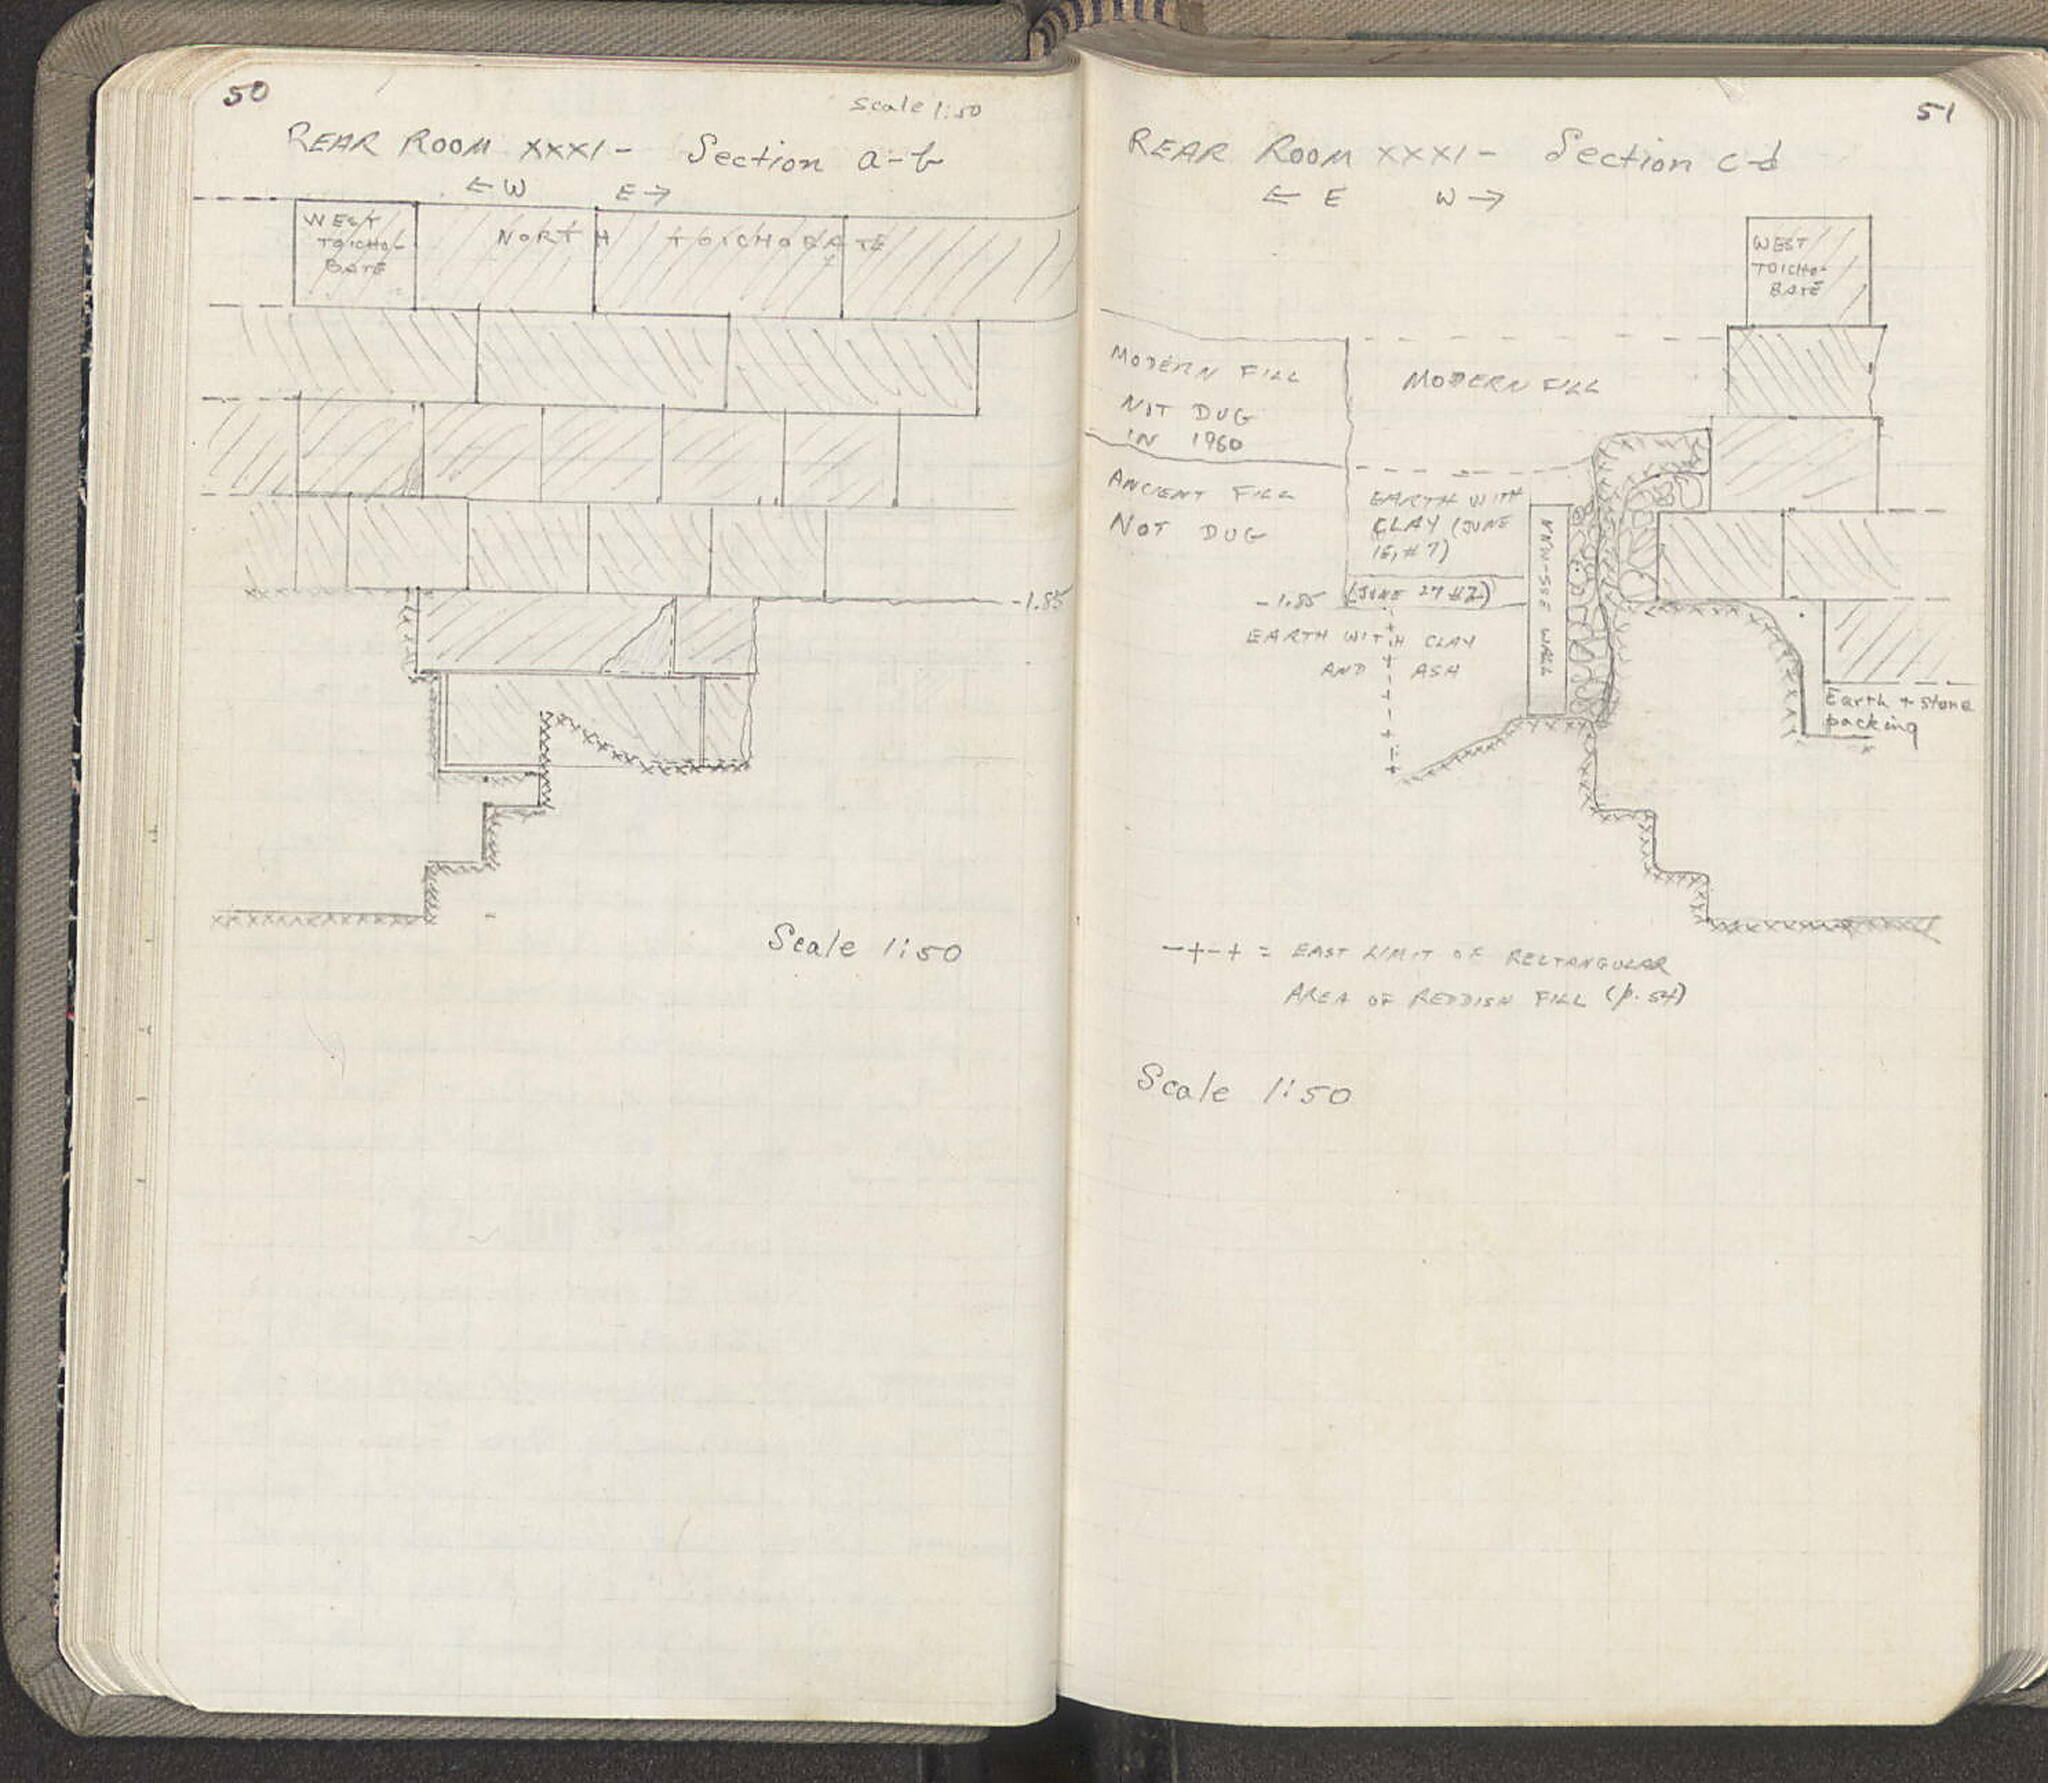 50
scale 1:50
REAR ROOM XXXI - Section a-b
← W E →
WEST
TOICHO-
BATE
NORTH TOICHOBATE
-1.85
Scale 1:50
51
REAR ROOM XXXI - Section c-d
← E W →
WEST
TOICHO-
BATE
MODERN FILL
NOT DUG
IN 1960
MODERN FILL
ANCIENT FILL
NOT DUG
EARTH WITH
CLAY (JUNE
16, #7)
NNW-SSE WALL
-1.85 (JUNE 27 #2)
EARTH WITH CLAY
AND ASH
Earth + stone
packing
-+-+ = EAST LIMIT OF RECTANGULAR
AREA OF REDDISH FILL (p. 54)
Scale 1:50